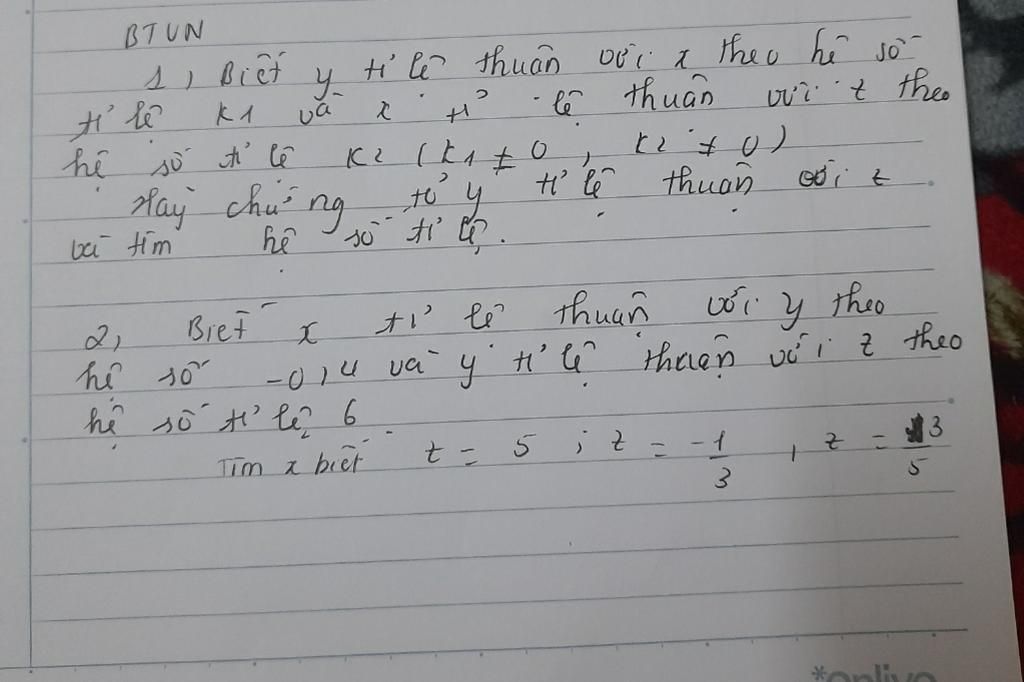 BTVN
1, Biết y tỉ lệ thuận với x theo hệ số
tỉ lệ k1 và x tỉ lệ thuận với z theo
hệ số tỉ lệ k2 (k1 ≠ 0, k2 ≠ 0)
Hãy chứng tỏ y tỉ lệ thuận với z
và tìm hệ số tỉ lệ.
2, Biết x tỉ lệ thuận với y theo
hệ số -0,4 và y tỉ lệ thuận với z theo
hệ số tỉ lệ 6
Tìm x biết z = 5 ; z = -1/3 , z = 3/5